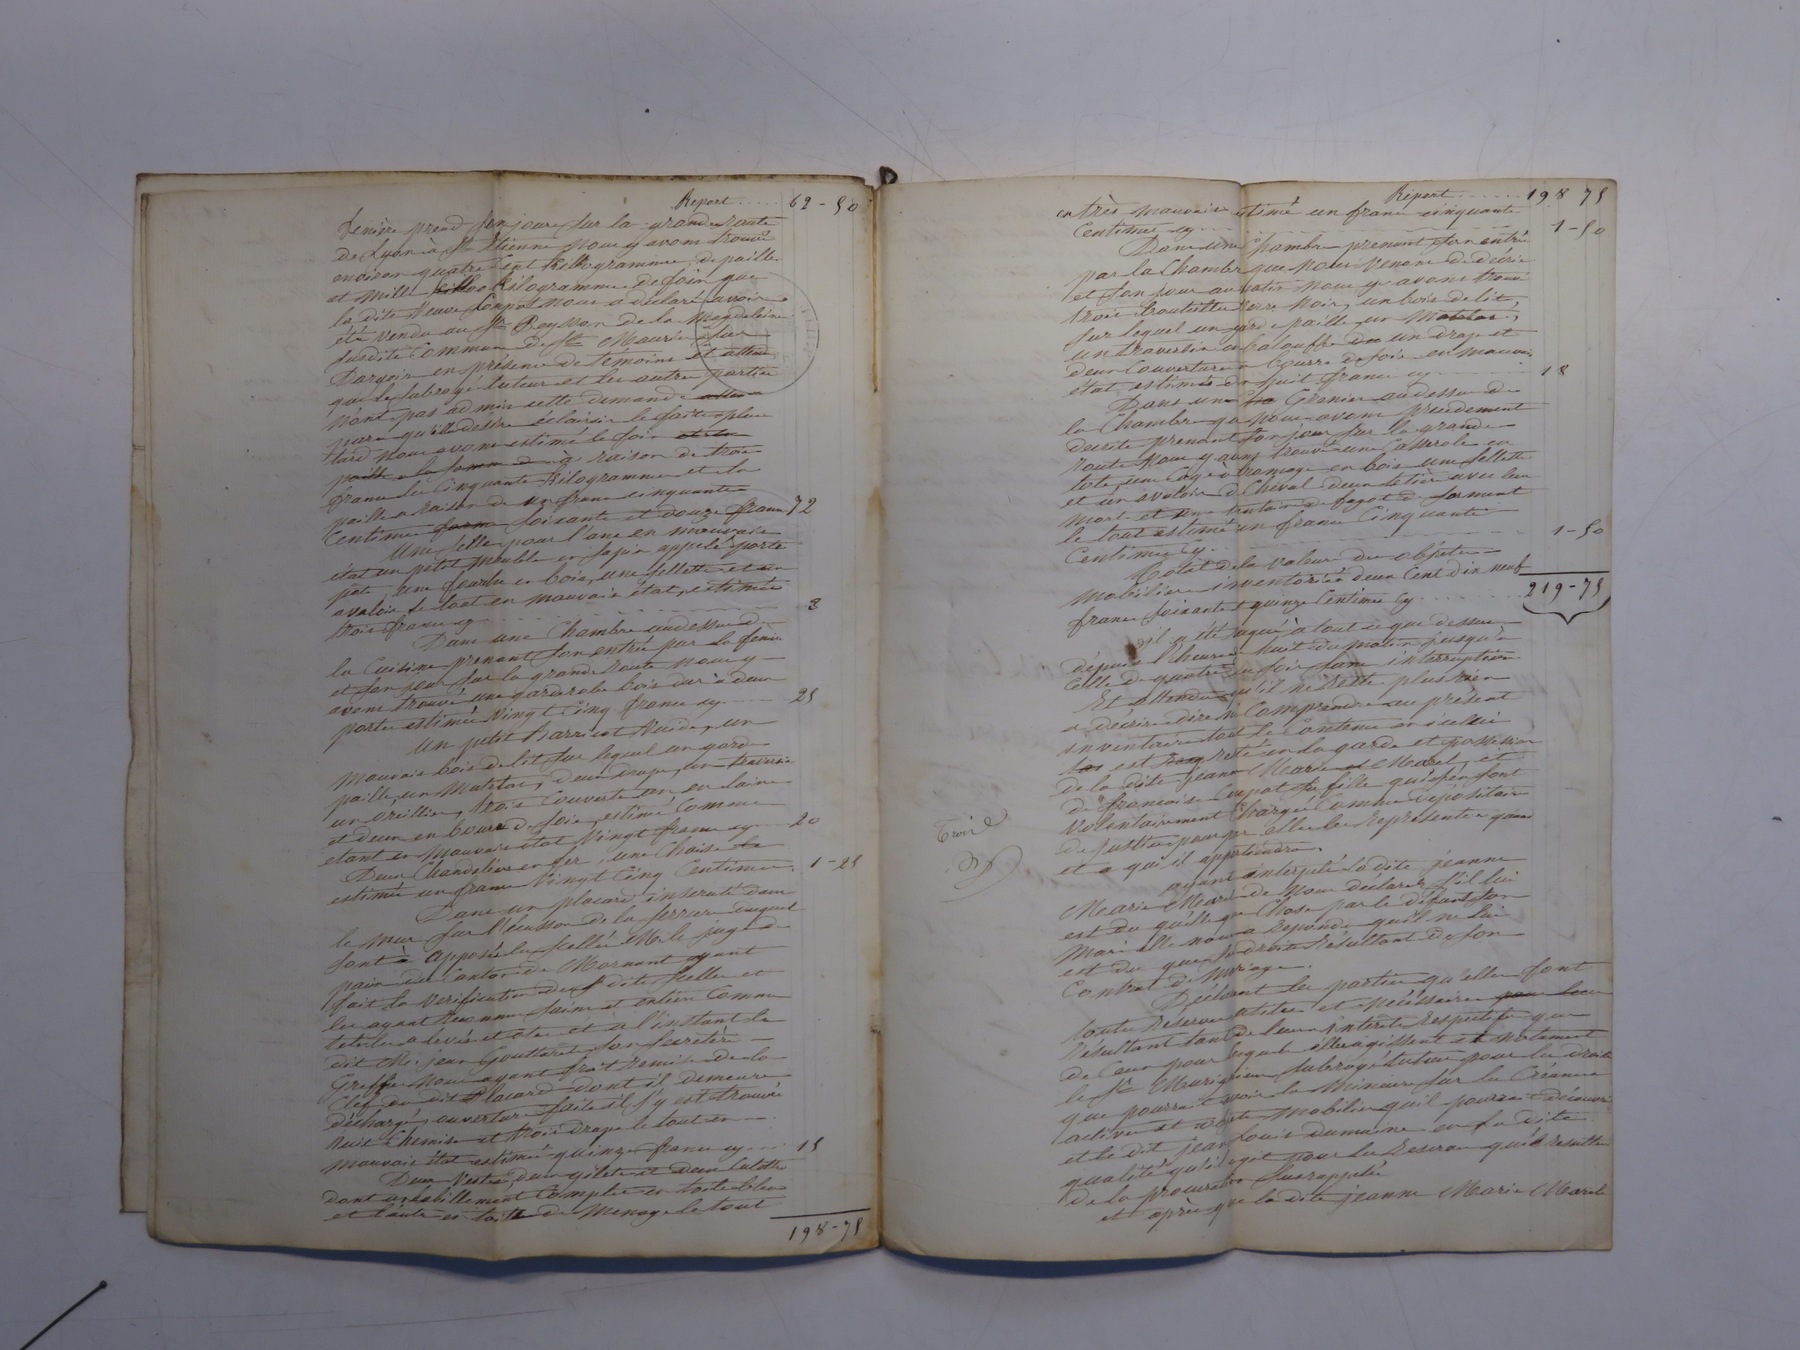 Report ..... 62 - 50
fenière prend son jour sur la grande route
de Lyon à St Etienne nous y avons trouvé
environ quatre cent kilogrammes de paille
et mille kilogrammes de foin que
la dite veuve Coupat nous a déclaré avoir
été vendu au Sr Peysson de la Magdeleine
susdite Commune de St Maurice sur
Dargoir en présence de temoins et attendu
que le subrogé tuteur et les autres parties
n'ont pas admis cette demande
parce qu'ils desire éclaircir le fait plus
tard nous avons estimé le foin et la
paille a la somme de à raison de trois
francs les Cinquante Kilogrammes et la
paille a raison de un franc cinquante
Centimes soixante et douze francs 72
Une selle pour l'ane en mauvais
état un petit meuble en sapin appelé porte
pots, une fourche en bois, une sellette et un
avaloir le tout en mauvais état, estimés
trois francs cy ..... 3
Dans une Chambre au dessus de
la Cuisine prenant son entrée par la feniere
et son jour sur la grande route nous y
avons trouvé une garderobe bois dur à deux
portes estimée vingt Cinq francs cy ..... 25
Un petit Barricot Vuide, un
mauvais bois de lit sur lequel un garde
paille, un Matelas, deux draps, un traversin
un oreillier, trois Couvertes une en laine
et deux en bourre de soie, estimé Comme
etant en Mauvais état Vingt francs cy ..... 20
Deux Chandeliers en fer, une Chaise
estimés un franc Vingt Cinq Centimes. 1 - 25
Dans un placard incruté dans
le mur sur l'écusson de la serrure duquel
sont apposés les scellés Mr le juge de
paix du Canton de Mornant ayant
fait la Verification des dits scellés et
les ayant reconnus sains et entiers Comme
tels les a levés et otés et à l'instant le
dit Me jean Gouttaret son secrétère
Greffier nous ayant fait remise de la
Clef du dit Placard dont il demeure
déchargé, ouverture faite il s'y est trouvé
huit Chemises et trois draps le tout en
mauvais état estimés quinze francs cy ..... 15
Deux Vestes, deux gilets et deux Culottes
dont un habillement Complet en toile bleu
et l'autre en toile de Menage le tout
198 - 75
Report ..... 198 75
en très mauvais estimé un franc cinquante
Centimes cy ..... 1 - 50
Dans une Chambre prenant son entrée
par la Chambre que nous venons de décrire
et son jour au matin nous y avons trouvé
trois bouteilles verre noir, un bois de lit,
sur lequel un garde paille, un Matelas,
un traversin un draps et
deux Couvertures Bourre de soie en mauvais
état estimés dix huit francs cy ..... 18
Dans un Grenier au dessus de
la Chambre que nous avons précédement
decrite prenant son jour sur la grande
route nous y avons trouvé une Casserole en
tole, une Cage à fromage en bois une sellette
et un avaloir de Cheval
mort et de fagots de sarment
le tout estimé un franc Cinquante
Centimes Cy ..... 1 - 50
Total de la valeur des objets
mobiliers inventoriés deux Cent dix neuf
francs soixante quinze Centimes cy ..... 219 - 75
il a été vaqué à tout ce que dessus
dépuis l'heure de huit du matin jusqu'à
Celle de quatre du soir sans interruption
Et attendu qu'il ne reste plus rien
a decrire dire ni Comprendre au présent
inventaire tout le Contenu en icelui
est resté en la garde et possession
de la dite jeanne Marie Marel, et
de françoise Coupat sa fille qui s'en sont
Volontairement Chargées Comme dépositaires
de justice pour par elles les représenter quand
et a qui il appartiendra.
Troisé
ayant interpelé la dite jeanne
Marie Marel de nous déclarer s'il lui
est du quelque Chose par le défunt son
Mari elle nous a repondu qu'il ne lui
est du que ses droits Résultant de son
Contrat de Mariage.
Déclarent les parties qu'elles font
toutes reserves utiles et nécéssaires pour leur
Résultant tant de leurs interets respectifs que
de Ceux pour lesquels elles agissent et notament
le Sr subrogé tuteur pour les droits
que pourrait avoir la Mineure sur les Créances
actives et autres Mobiliers qu'il pourrait découvrir
et le dit jean Louis Dumaine en sa dite
qualité qu'il agit pour les Reserves qu'il resulte
de la procuration susrappelée
et après que la dite jeanne Marie Marel